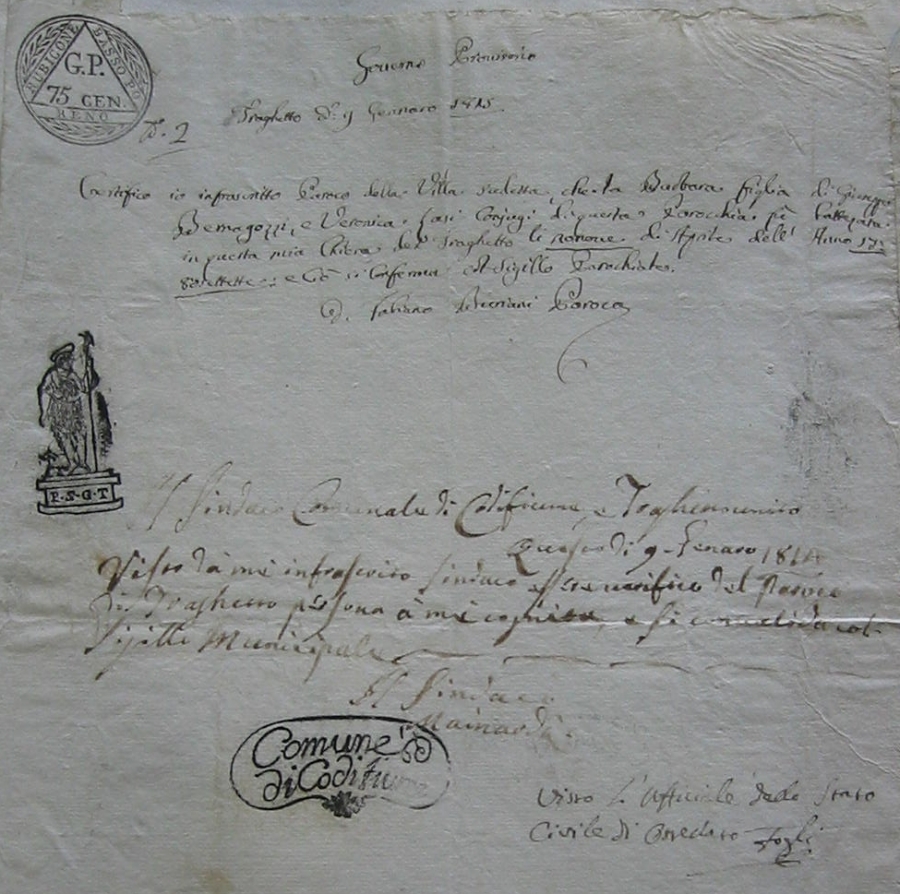 RUBICONE BASSO PO
G.P.
75 CEN.
RENO
N.º 2
Governo Provvisorio
Traghetto d. 9 Gennaro 1815
Certifico io infrascritto Paroco della Villa sudetta, che la Barbara figlia di Giuseppe
Bernagozzi, e Veronica Coniugi di questa Parocchia fù battezzata
in questa mia Chiesa del Traghetto li nonove di Aprile dell' Anno
settette e Ciò si Conferma Sigillo Parochiale.
D. Fabiano Paroco
P.S.G.T
Il Sindaco Comunale di Codifiume e Traghetto
Questo dì 9 Genaro 181
Visto dà me infrascrito Sindaco essere del Paroco
di Traghetto persona à me cognita, e si col
Sigillo Municipale
Il Sindaco
Mainardi
Comune
di Codifiume
Visto L'Ufficiale dello Stato
Civile di Fogli